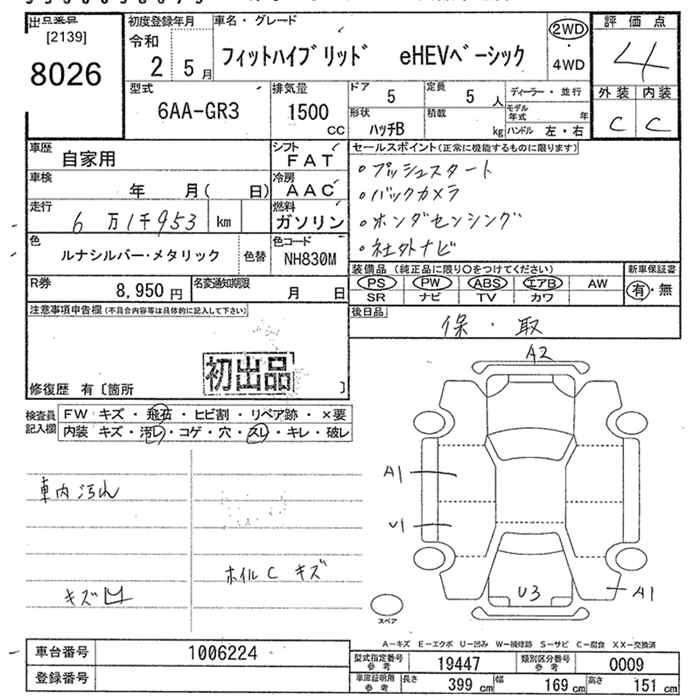 出品番号
[2139]
8026
初度登録年月
令和
2 5月
車名・グレード
フィットハイブリッド eHEVベーシック
2WD
・
4WD
評価点
4
外装 内装
C C
型式
6AA-GR3
排気量
1500
cc
ドア 5
定員 5 人
形状 ハッチB
積載 kg
ディーラー・並行
モデル年式 年
ハンドル 左・右
車歴 自家用
シフト FAT
車検 年 月( 日)
冷房 AAC
走行 6万1千953 km
燃料 ガソリン
色 ルナシルバー・メタリック
色替
色コード NH830M
R券 8,950円
名変通知期限 月 日
セールスポイント(正常に機能するものに限ります)
○プッシュスタート
○バックカメラ
○ホンダセンシング
○社外ナビ
装備品 (純正品に限り○をつけてください)
PS PW ABS エアB AW
SR ナビ TV カワ
新車保証書
有・無
後日品
保・取
注意事項申告欄(不具合内容等は具体的に記入して下さい)
初出品
修復歴 有〔箇所 〕
検査員記入欄
FW キズ・飛石・ヒビ割・リペア跡・×要
内装 キズ・汚レ・コゲ・穴・スレ・キレ・破レ
車内汚れ
ホイルC キズ
キズ凹
A2
A1
U1
U3
A1
スペア
A-キズ E-エクボ U-凹み W-補修跡 S-サビ C-腐食 XX-交換済
車台番号 1006224
登録番号
型式指定番号 参考 19447
類別区分番号 参考 0009
車庫証明用 参考 長さ 399 cm 幅 169 cm 高さ 151 cm